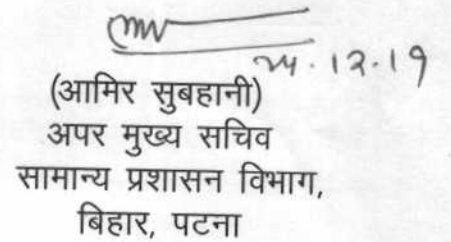 24.12.19
(आमिर सुबहानी)
अपर मुख्य सचिव
सामान्य प्रशासन विभाग,
बिहार, पटना